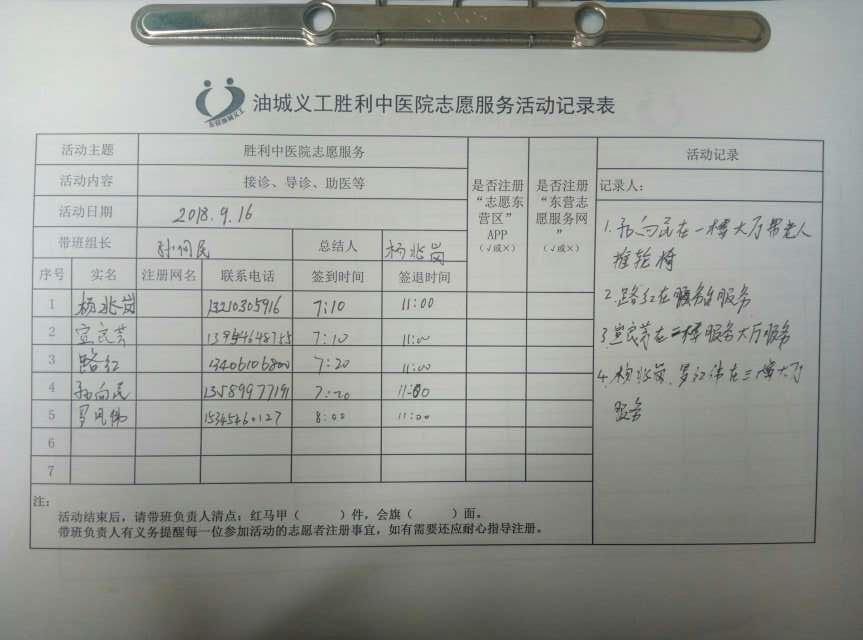 油城义工胜利中医院志愿服务活动记录表
东营油城义工
活动主题 胜利中医院志愿服务
活动内容 接诊、导诊、助医等
活动日期 2018.9.16
带班组长 孙向民 总结人 杨兆岗
是否注册“志愿东营区”APP（√或×）
是否注册“东营志愿服务网”（√或×）
序号 实名 注册网名 联系电话 签到时间 签退时间
1 杨兆岗 13210305916 7:10 11:00
2 宣良芳 7:10 11:00
3 路红 13406106800 7:20 11:00
4 孙向民 13589977191 7:20 11:00
5 15345460127 8:00 11:00
6
7
注：
活动结束后，请带班负责人清点：红马甲（ ）件，会旗（ ）面。
带班负责人有义务提醒每一位参加活动的志愿者注册事宜，如有需要还应耐心指导注册。
活动记录
记录人：
1.孙向民在一楼大厅帮老人
推轮椅
2.路红在服务台服务
3.宣良芳在二楼服务大厅服务
4.杨兆岗、罗 在三楼大厅
服务